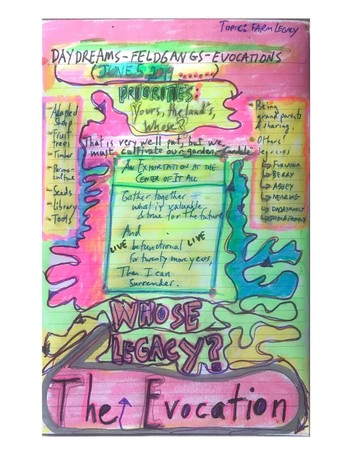 TOPIC: FARM LEGACY
DAYDREAMS-FELDGANGS-EVOCATIONS
(JUNE 5 2019 ......)
PRIORITIES:
Yours, the land's,
Whose?
That is very well put, but we
must cultivate our garden
Adapted
Sheep
Fruit
trees
Timber
Perma-
culture
Seeds
Library
Tools
AN EXHORTATION AT THE
CENTER OF IT ALL
Gather together
what is valuable
& true for the future
And
LIVE
LIVE
for twenty more years,
Then I can
Surrender.
Being
grandparents
& sharing.
Others
legacies
FUKUOKA
BERRY
ABBEY
NEARING
WHOSE
LEGACY?
The Evocation